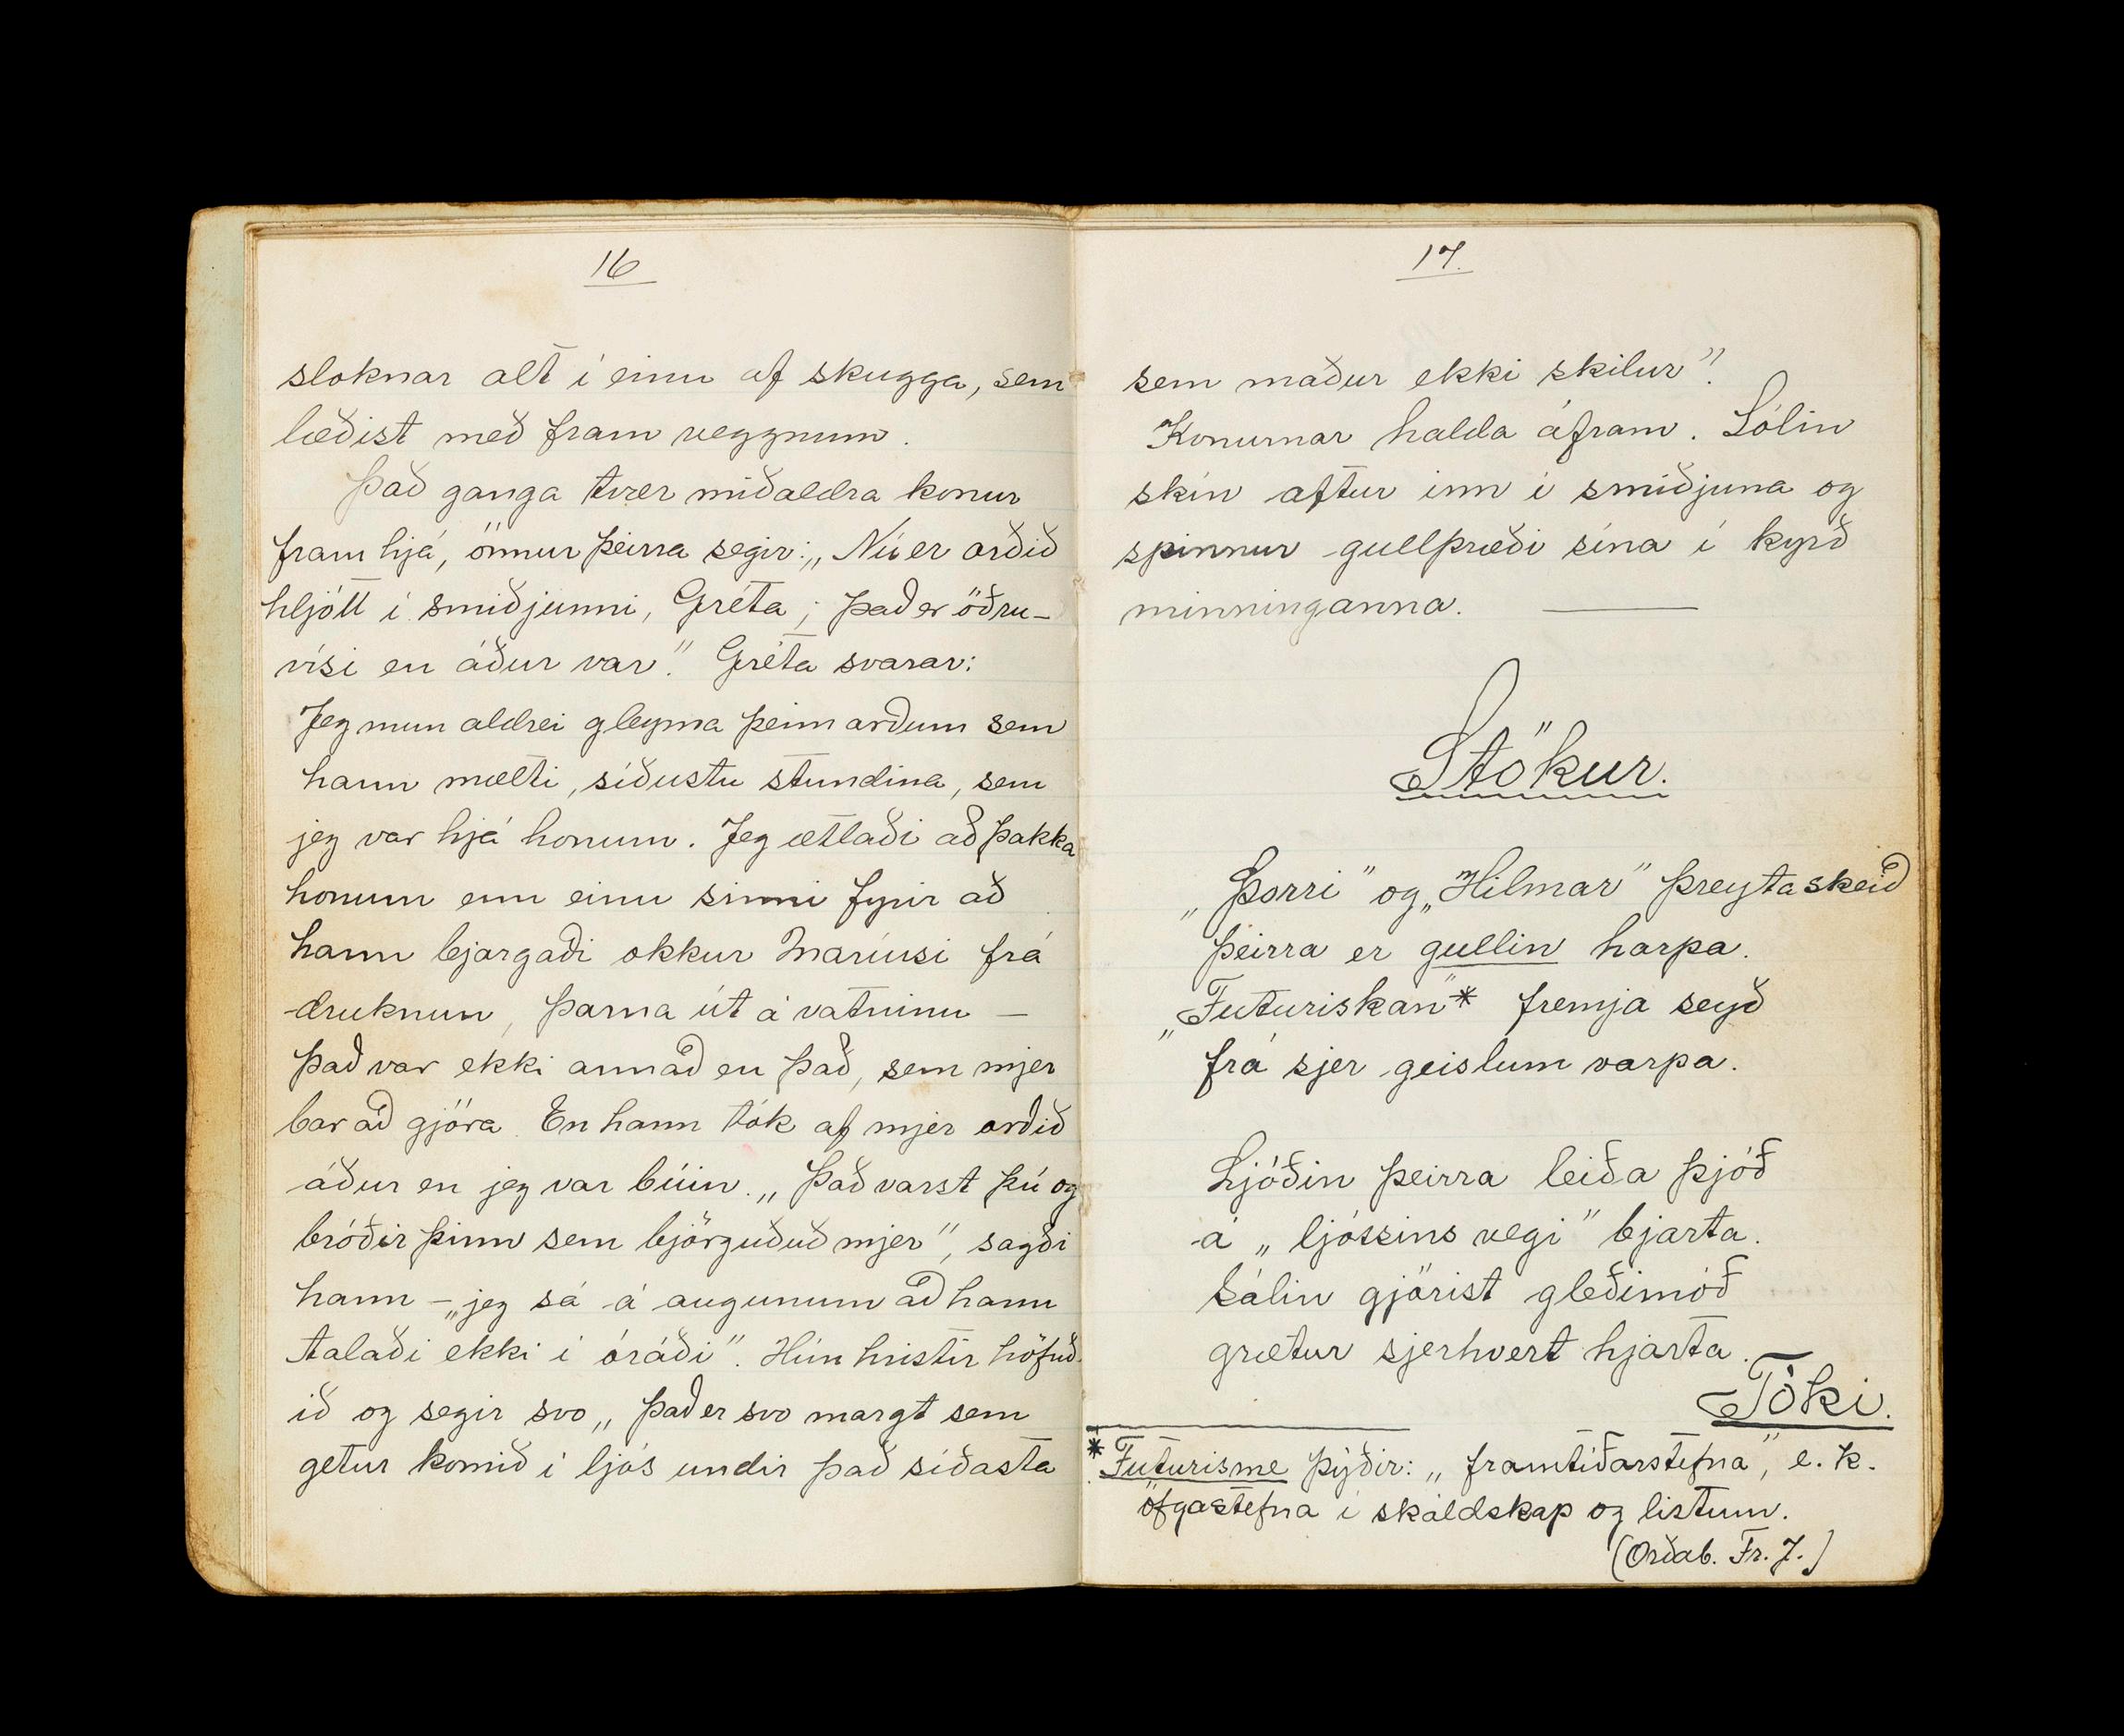 16
sloknar alt í einu af skugga, sem
læðist með fram veggnum.
Það ganga tvær miðaldra konur
fram hjá, önnur þeirra segir: „Nú er orðið
hljótt í smiðjunni, Gréta; það er öðru-
vísi en áður var." Gréta svarar:
Jeg mun aldrei gleyma þeim orðum sem
hann mælti, síðustu stundina, sem
jeg var hjá honum. Jeg ætlaði að þakka
honum enn einu sinni fyrir að
hann bjargaði okkur Maríusi frá
druknun, þarna út á vatninu —
það var ekki annað en það, sem mjer
bar að gjöra. En hann tók af mjer orðið
áður en jeg var búin. „Það varst þú og
bróðir þinn sem björguðuð mjer", sagði
hann – „jeg sá á augunum að hann
talaði ekki í óráði". Hún hristir höfuð-
ið og segir svo „það er svo margt sem
getur komið í ljós undir það síðasta
17.
sem maður ekki skilur".
Konurnar halda áfram. Sólin
skín aftur inn í smiðjuna og
spinnur gullþræði sína í kyrð
minninganna. —
Stökur.
„Þorri" og „Hilmar" þreyta skeið
þeirra er gullin harpa.
„Futuriskan"* fremja seyð
frá sjer geislum varpa.
Ljóðin þeirra leiða þjóð
á „ljóssins vegi" bjarta.
Sálin gjörist gleðimóð
grætur sjerhvert hjarta.
Tóki.
* Futurisme þýðir: „framtíðarstefna", e. k.
öfgastefna í skáldskap og listum.
(Orðab. Fr. J.)